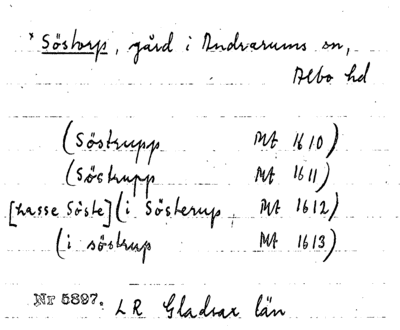 * Söstorp, gård i Andrarums sn,
Albo hd
(Söstrupp Mt 1610)
(Söstrupp Mt 1611)
[Lasse Söste] (i Sösterup Mt 1612)
(i söstrup Mt 1613)
Nr 5897. LR Gladsax län